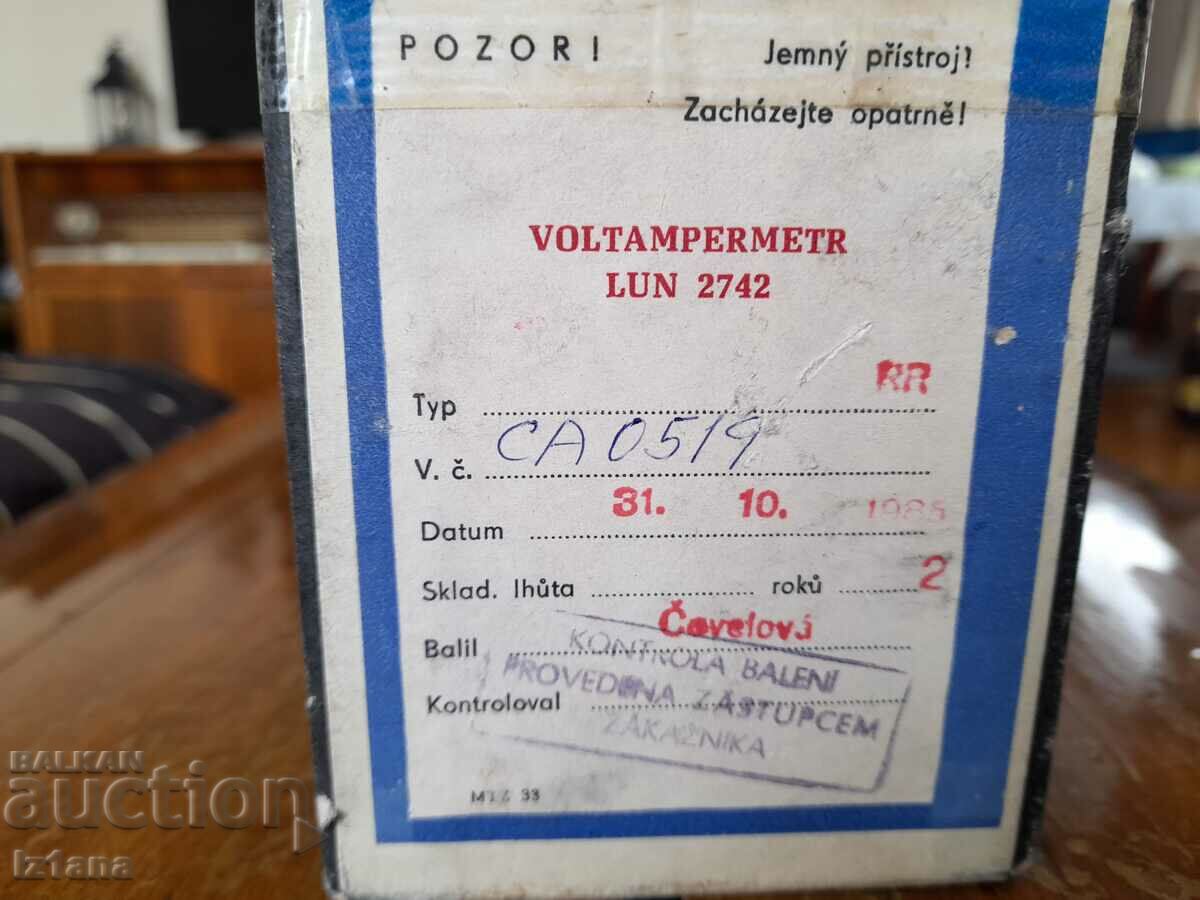 POZOR! Jemný přístroj!
Zacházejte opatrně!
VOLTAMPERMETR
LUN 2742
Typ RR
V. č. CA0519
Datum 31. 10. 1985
Sklad. lhůta roků 2
Balil Čevelová
Kontroloval
KONTROLA BALENÍ
PROVEDENA ZÁSTUPCEM
ZÁKAZNÍKA
33
BALKAN
auction
Iz1ana